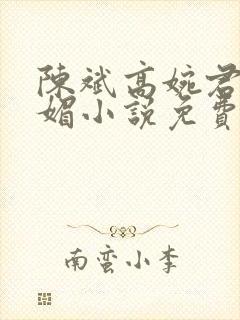 陳斌高婉君
媚小說免費
南蛮小李